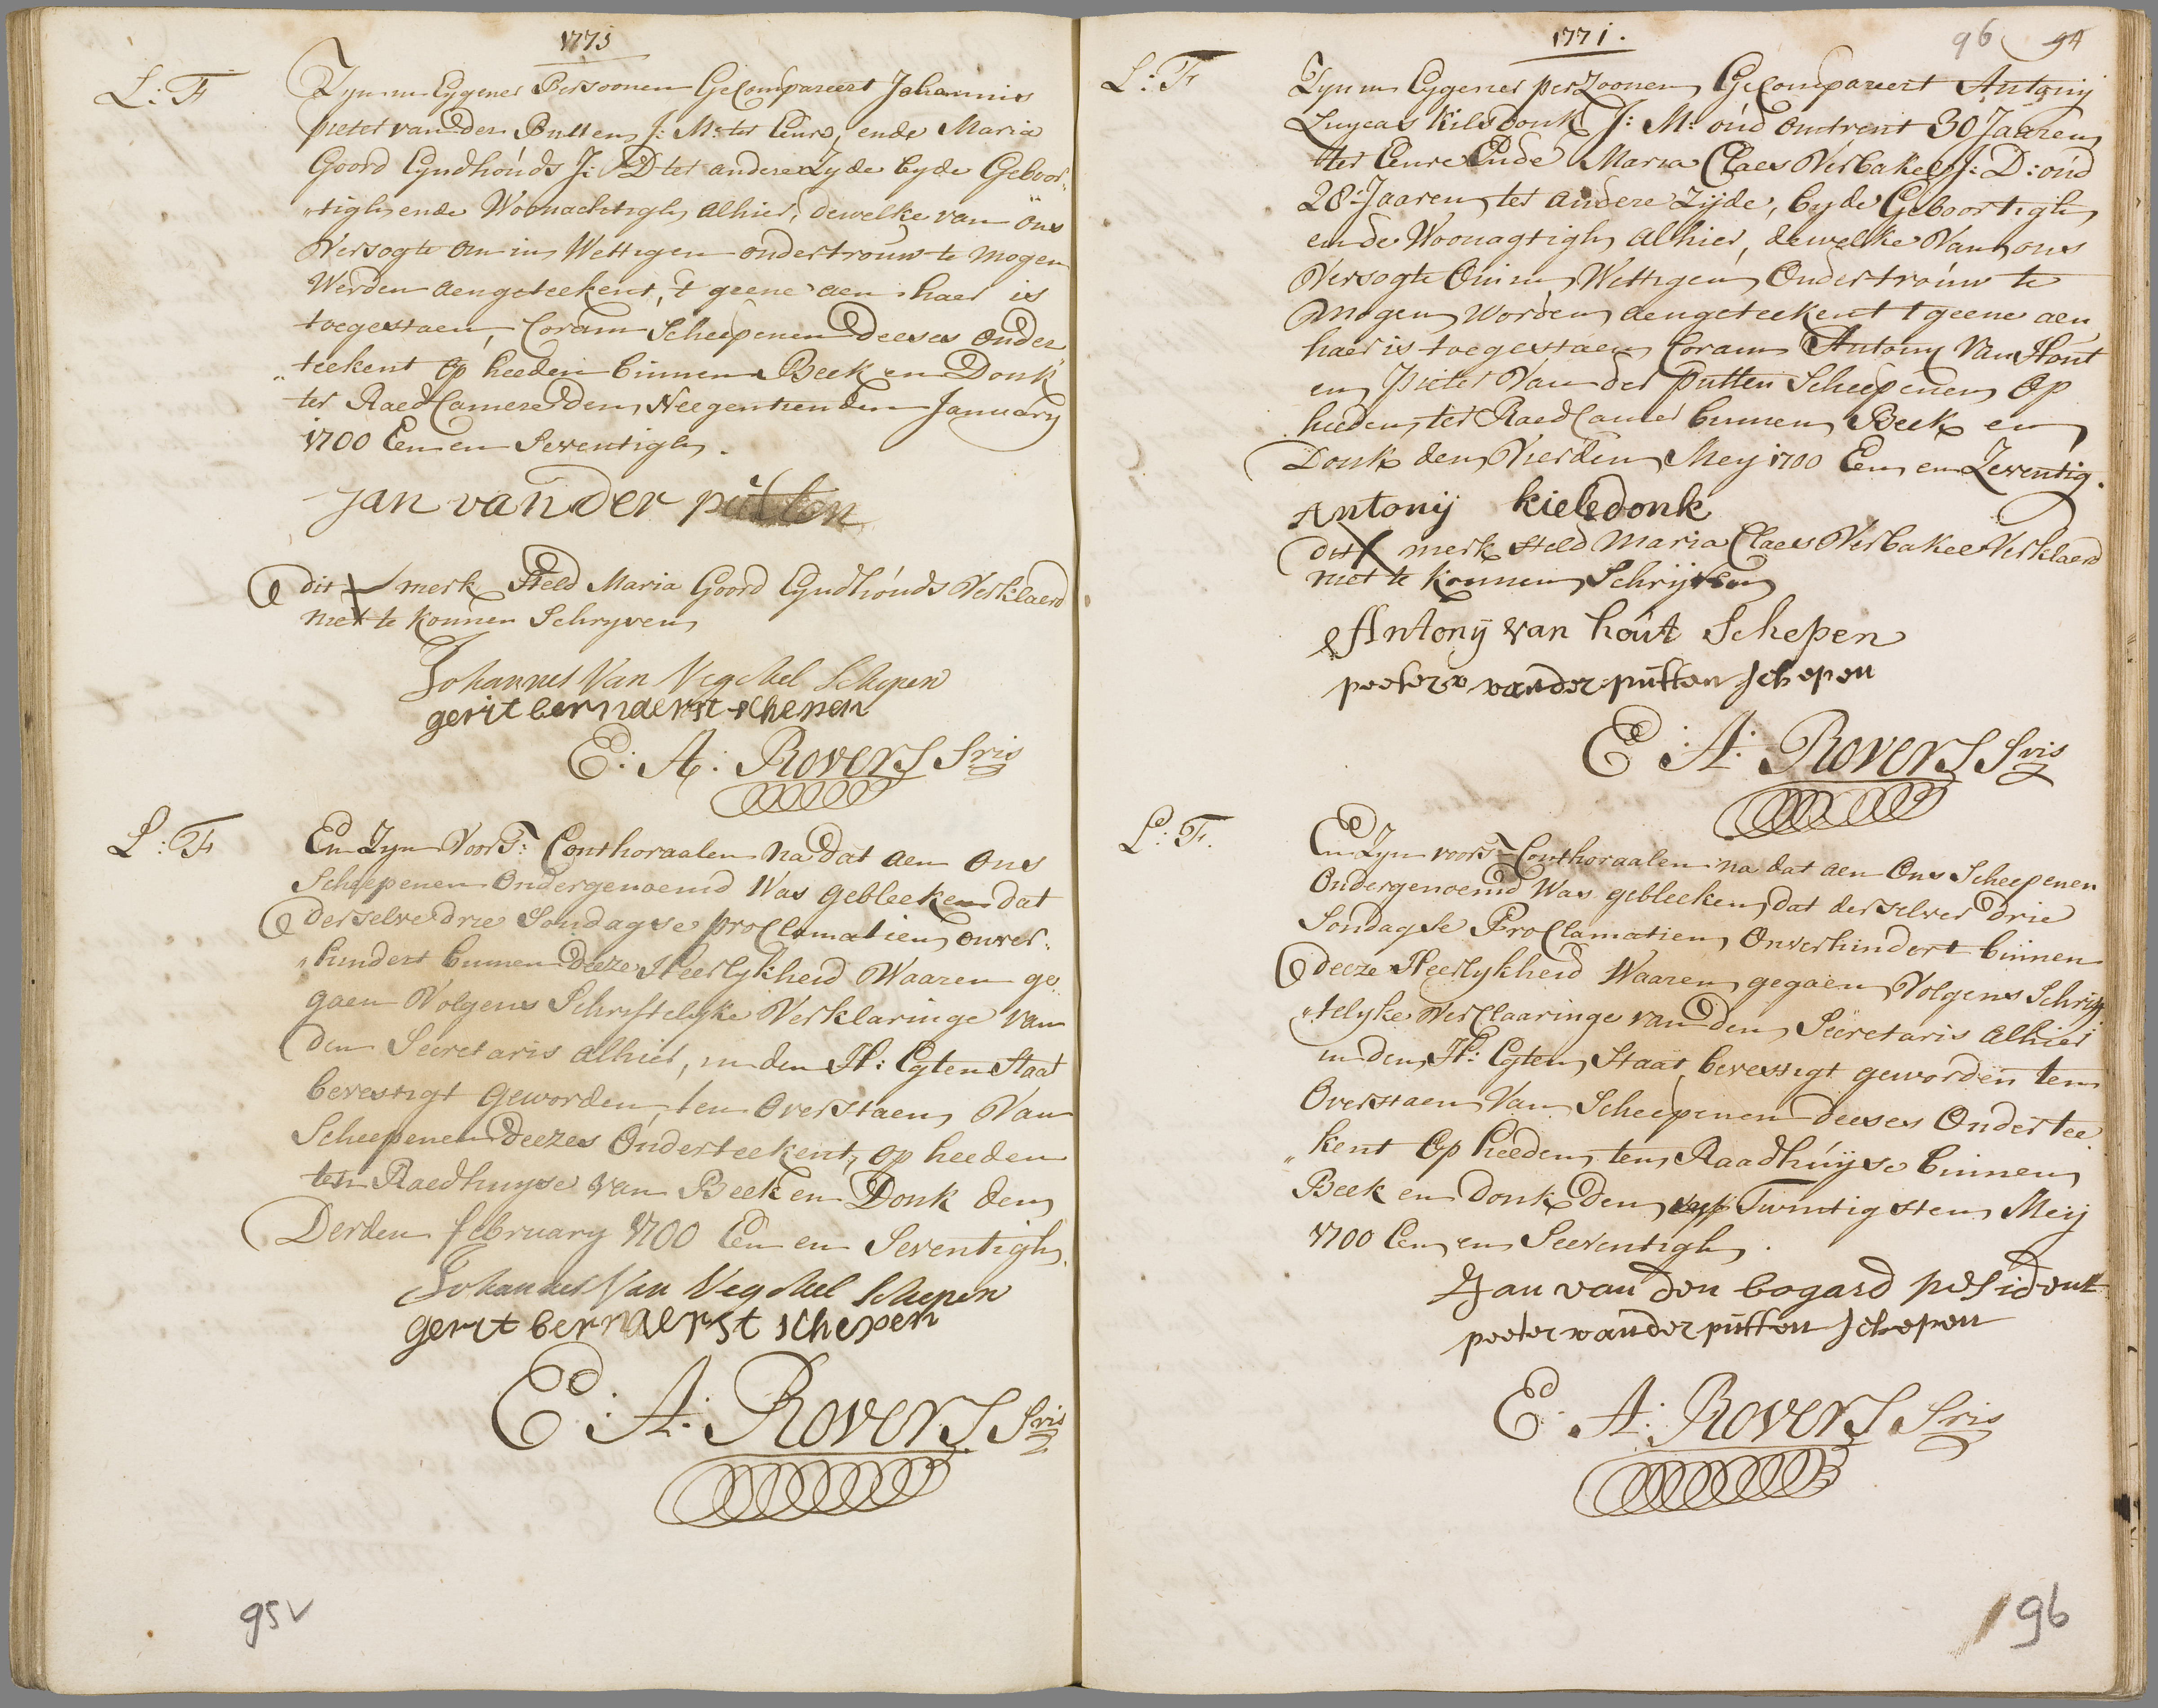 1771
L: F
Zyn in Eygener Persoonen Gecompareert Johannis
pieter van der Putten J: M: ter Eenre, ende Maria
Goord Eyndhouds J: D ter andere Zyde byde Geboor„
„tigh ende Woonachtigh alhier, dewelke van ons
Versogte om in Wettigen ondertrouw te mogen
Werden aengeteekent, 't geene aen haer is
toegestaen, Coram Scheepenen deeses onder
„teekent op heeden binnen Beek en Donk
ter Raed Camere den Neegentienden January
1700 Een en Seventigh.
Jan van der putten
dit X merk Steld Maria Goord Eyndhouds Verklaerd
niet te konnen Schryven
Johannes Van Veghel Schepen
gerit bernaerst schepen
E: A: Rovers Sris
L: F
En Zyn Voors: Conthoraalen na dat aen ons
Scheepenen Ondergenoemd Was gebleeken dat
derselve drie Sondagse proclamatien onver„
„hindert binnen deeze Heerlykheid Waaren ge„
gaen Volgens Schriftelyke Verklaringe van
den Secretaris alhier, in den H: Egten Staat
bevestigt geworden, ten Overstaen Van
Scheepenen deezes Onderteekent, op heeden
ten Raedhuyse van Beek en Donk den
Derden february 1700 Een en Seventigh.
Johannes Van Veghel Schepen
gerit bernaerst schepen
E: A: Rovers Sris
95v
1771.
96 94
L: F
Zyn in Eygener perzoonen Gecompareert Antony
Luycas Kilsdonk J: M: oud omtrent 30 Jaaren
ter Eenre Ende Maria Claes Verbakel J: D: oud
28 Jaaren ter andere Zijde, byde Geboortigh
ende Woonagtigh alhier, dewelke Van ons
Versogte Om in Wettigen Ondertrouw te
mogen Worden aengeteekent t geene aen
haer is toegestaen Coram Antony Van Hout
en Pieter Van der putten Scheepenen op
heeden ter Raed Camer binnen Beek en
Donk den Vierden Meij 1700 Een en Zeventig.
Antonij kielsdonk
dit X merk Steld Maria Claes Verbakel Verklaerd
niet te konnen Schrijven
Antonij van hout Schepen
peeter van der putten schepen
E: A: Rovers Sris
L: F.
En Zyn voors: Conthoraalen na dat aen Ons Scheepenen
Ondergenoemd Was gebleeken, dat derselver drie
Sondagse Proclamatien Onverhindert binnen
deeze Heerlykheid Waaren gegaen Volgens Schrif
„telyke Verclaaringe van den Secretaris alhier
in den H: Egten Staat bevestigt geworden ten
Overstaen Van Scheepenen deeses Ondertee
„kent Op heeden ten Raadhuijse binnen
Beek en Donk den Twintigsten Meij
1700 Een en Seeventigh.
Jan van den bogard president
peeter van der putten schepen
E: A: Rovers Sris
96